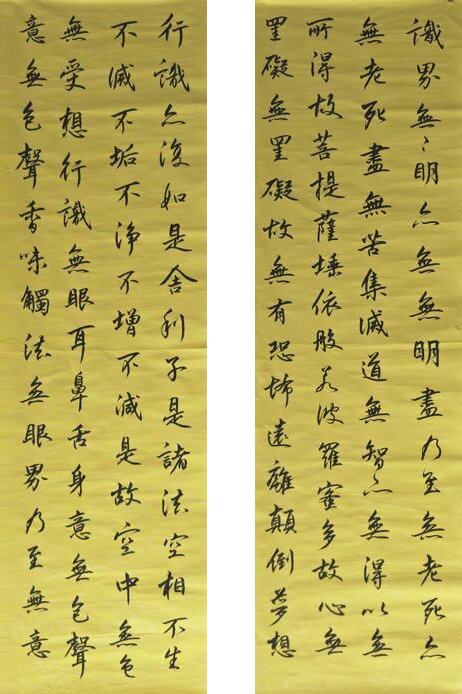 行識亦復如是舍利子是諸法空相不生
不滅不垢不淨不增不減是故空中無色
無受想行識無眼耳鼻舌身意無色聲
意無色聲香味觸法無眼界乃至無意
識界無〻明亦無無明盡乃至無老死亦
無老死盡無苦集滅道無智亦無得以無
所得故菩提薩埵依般若波羅蜜多故心無
罣礙無罣礙故無有恐怖遠離顛倒夢想